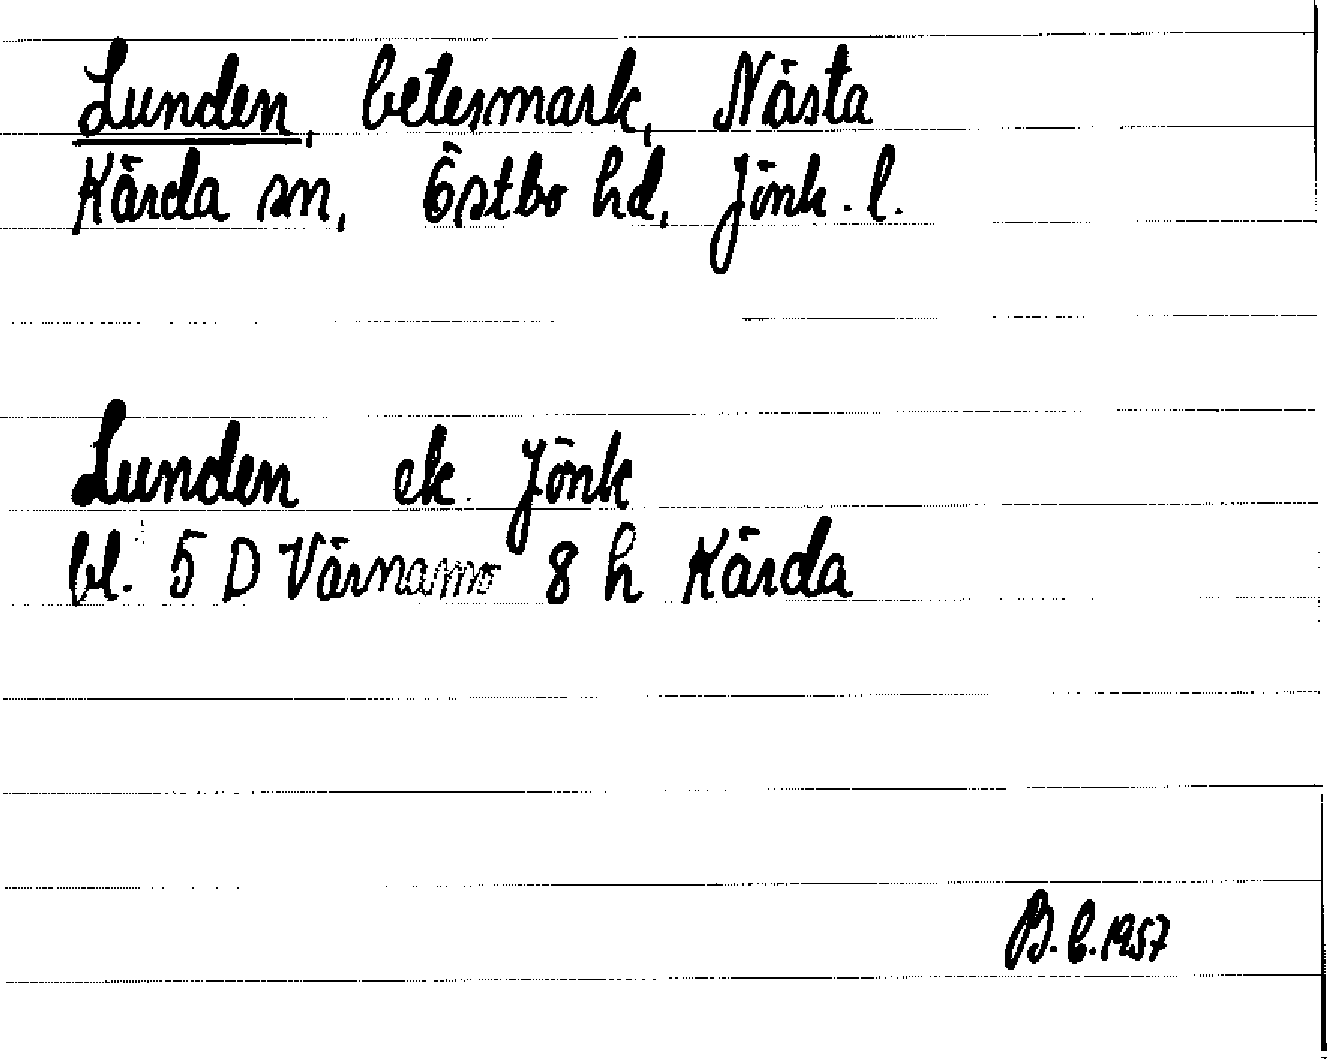 Lunden, betesmark, Nästa
Kärda sn, Östbo hd, Jönk. l.
Lunden ek. Jönk
bl. 5 D Värnamo 8 h Kärda
B. C. 1957